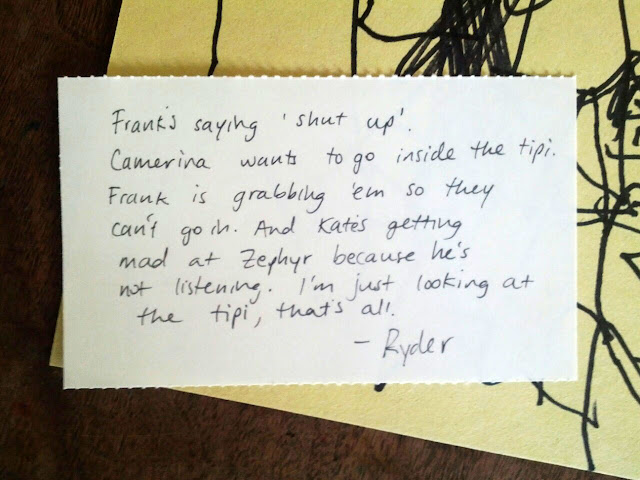 Frank's saying 'shut up'.
Camerina wants to go inside the tipi.
Frank is grabbing 'em so they
can't go in. And Kate's getting
mad at Zephyr because he's
not listening. I'm just looking at
the tipi, that's all.
- Ryder